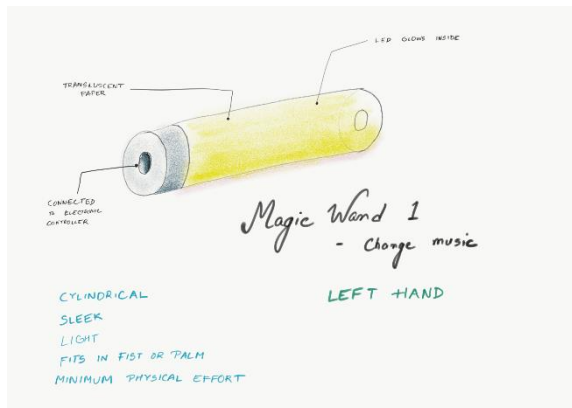 LED GLOWS INSIDE
TRANSLUSCENT
PAPER
CONNECTED
TO ELECTRONIC
CONTROLLER
Magic Wand 1
- Change music
LEFT HAND
CYLINDRICAL
SLEEK
LIGHT
FITS IN FIST OR PALM
MINIMUM PHYSICAL EFFORT